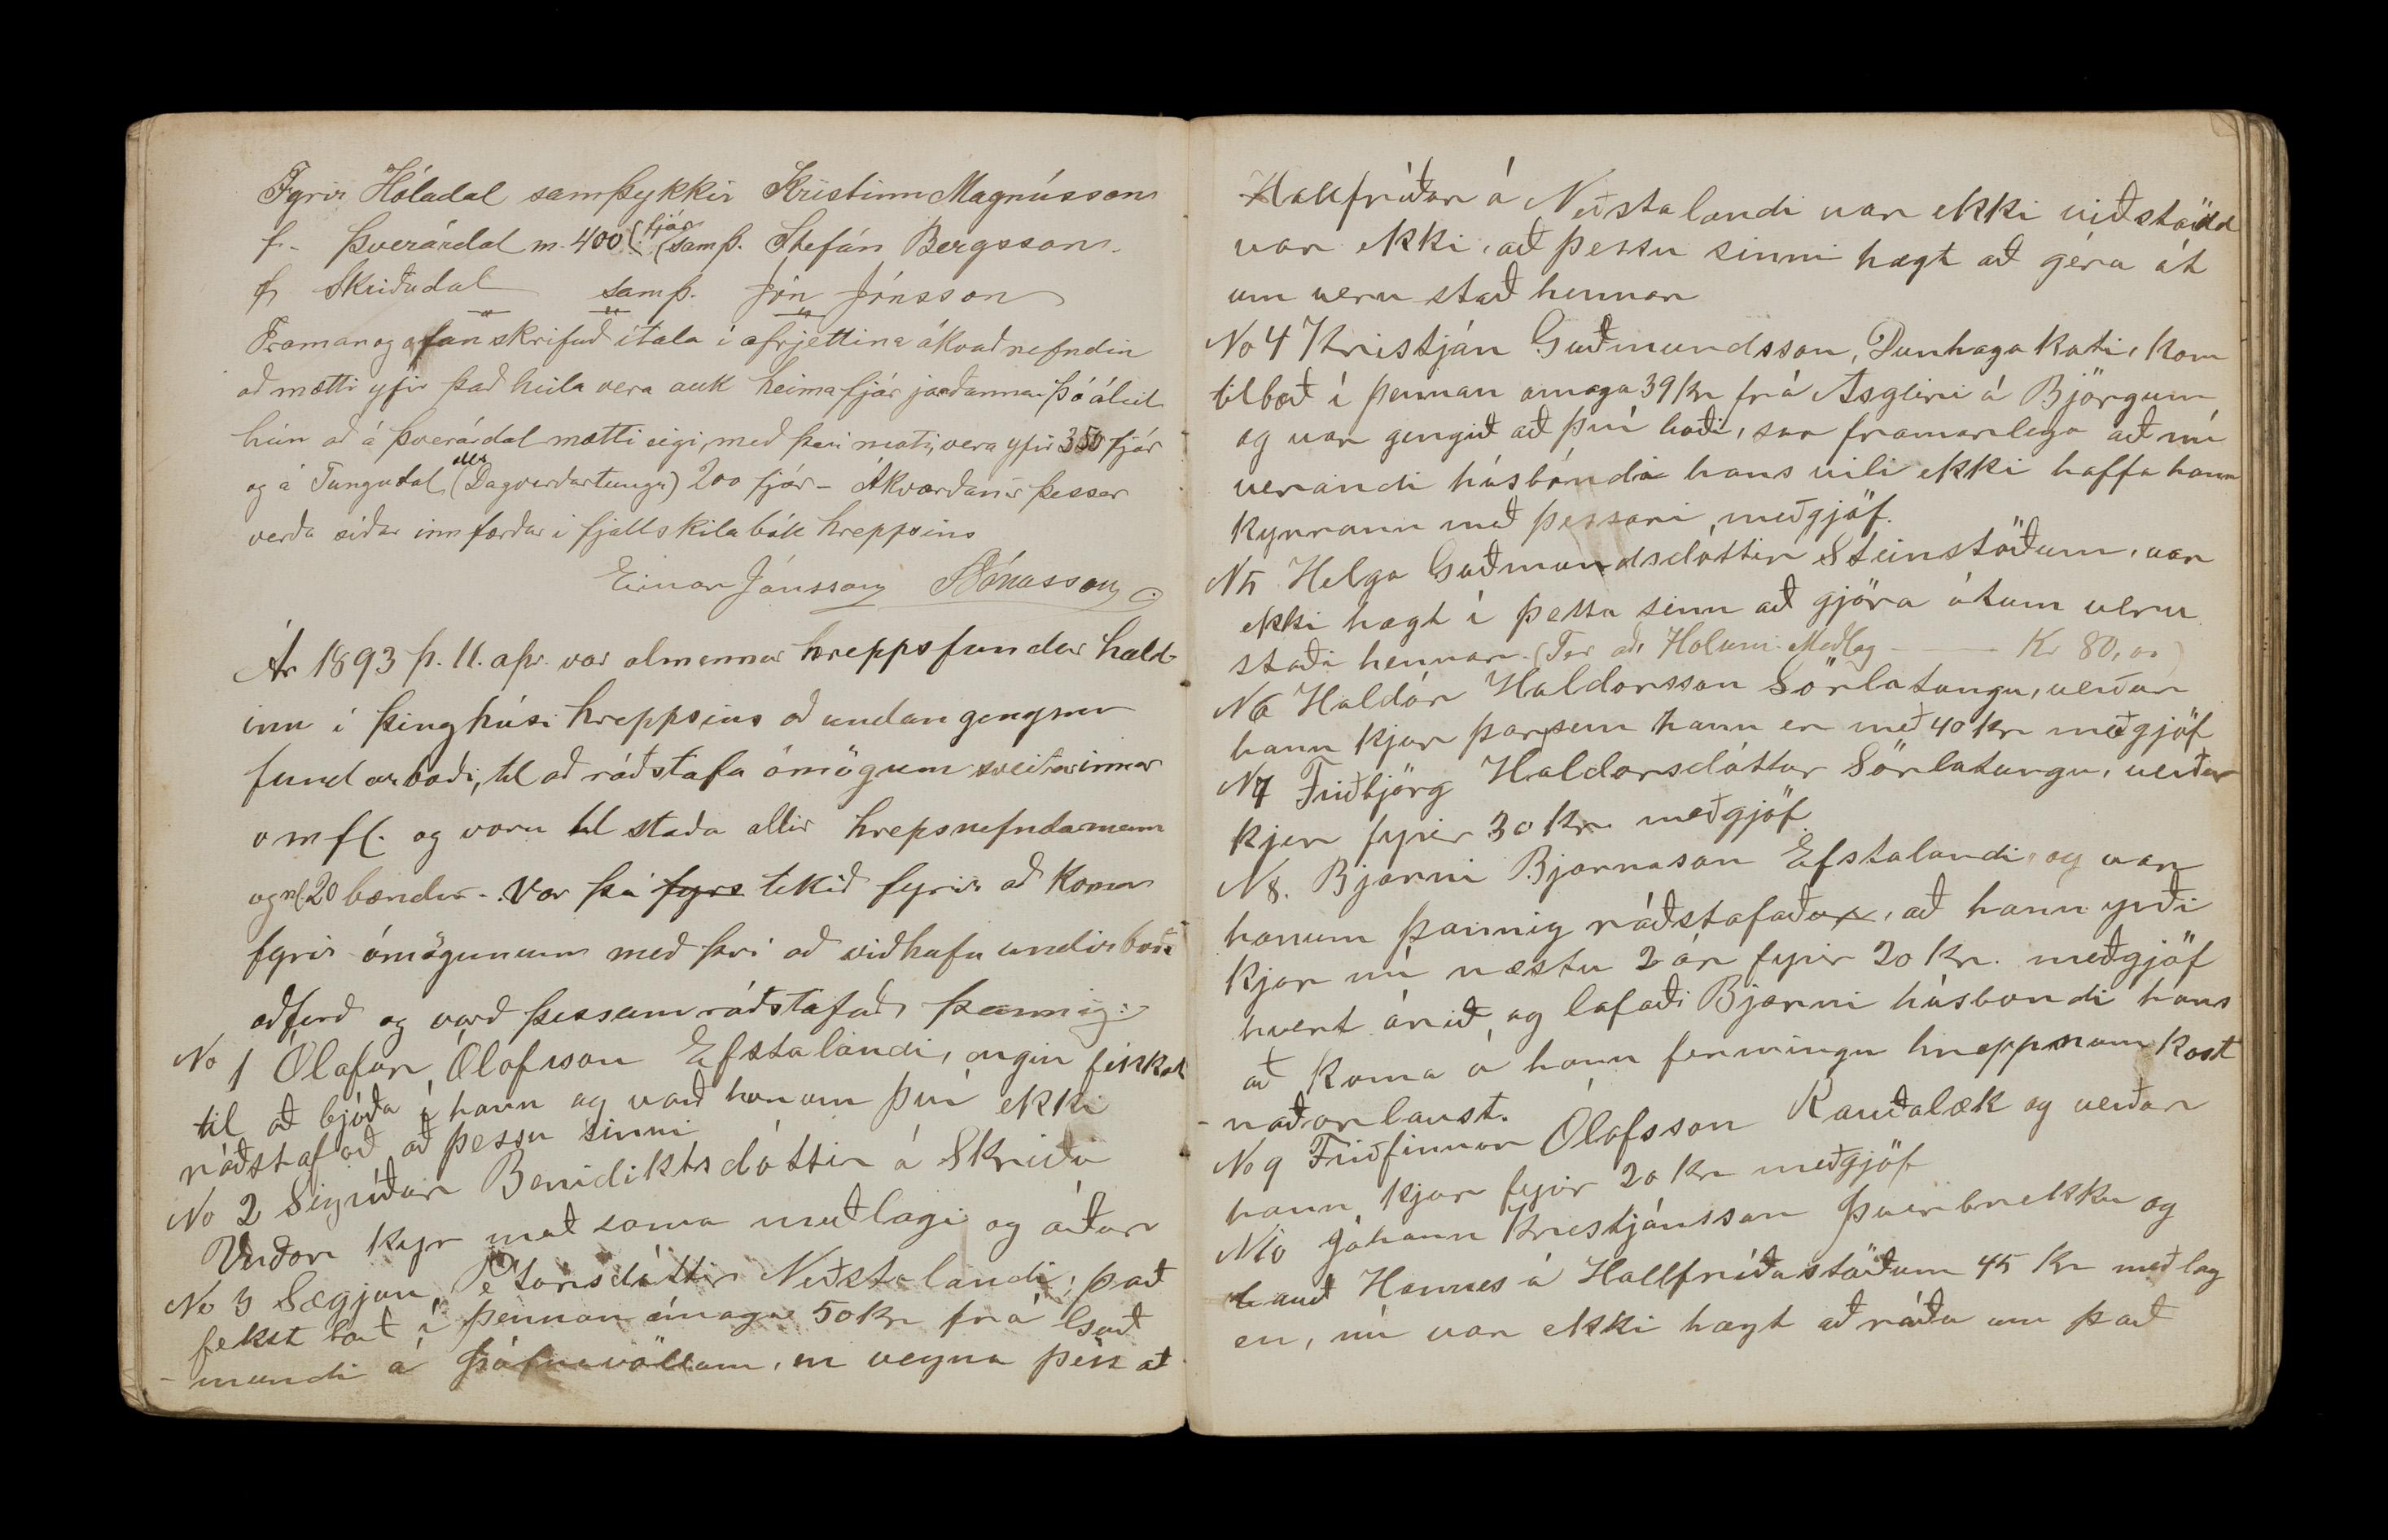 Fyrir Hóladal samþykkir Kristinn Magnússon
f. - Þverárdal m. 400 fjár (samþ. Stefán Bergsson.
f. Skriðudal samþ. Jón Jónsson
Framan og ofan skrifuð ítala í afrjettina ákvað nefndin
að mætti yfir það heila vera auk heimafjár jarðanna Þó áleit
hún að á Þverárdal mætti eigi, með þessi mati, vera yfir 350 fjár
og á Tungudal (Dagverðartungu) 200 fjár - Ákvarðanir þessar
verða síðar innfærðar í fjallskilabók hreppsins
Einar Jónsson Jónasson
Ár 1893 þ. 11. apr. var almennur hreppsfundur hald-
inn í þinghúsi hreppsins að undangengnu
fundarboði, til að ráðstafa ómögum sveitarinnar
o m fl. og voru til staða allir hrepsnefndarmenn
og nl. 20 bændur - Var þá fyrs tekið fyrir að koma
fyrir ómögunum með því að viðhafa undirboðs
aðferð og varð þessum ráðstafað þannig:
No 1 Ólafur Ólafsson Efstalandi, engin fekkst
til að bjóða í hann og varð honum því ekki
ráðstafað að þessu sinni
No 2 Sigríður Benidiktsdóttir á Skriðu
Verður kyr með sama meðlagi og áður
No 3 Sægjun Pétursdóttir Neðstalandi, það
fekst boð í þennan ómaga 50 kr frá Guð
- mundi á Þúfnavöllum, en vegna þess at
Hallfríður á Neðstalandi var ekki viðstödd
var ekki, að þessu sinni hægt að géra út
um veru stað hennar
No 4 Kristján Guðmundsson, Dunhagakoti, kom
tilboð í þennan omaga 39 kr frá Asgeiri á Björgum
og var gengið að því boði, svo framarlega að nú
verandi húsbóndi hans vili ekki haffa hann
kyrrann með þessari meðgjöf.
N5 Helga Guðmundsdóttir Steinstöðum, var
ekki hægt í þetta sinn að gjöra útum veru
staði hennar. (Fer að Holum. Meðlag - Kr 80,00)
N6 Haldór Haldorsson Sörlatungu, verður
hann kjur þarsem hann er með 40 kr meðgjöf
N7 Friðbjörg Haldorsdóttur Sörlatungu, verður
kjur fyrir 30 kr meðgjöf
N8. Bjarni Bjarnason Efstalandi, og var
honum þannig ráðstafað, að hann yrði
kjur nú næstu 2 ár fyrir 20 kr. meðgjöf
hvert árið, og lofaði Bjarni húsbondi hans
að koma á hann fermingu hreppnum kost
- naðarlaust.
No 9 Friðfinnur Ólafsson Rauðalæk og verður
hann kjur fyrir 20 kr meðgjöf
N10 Jóhann Kristjánsson Þverbrekku og
bauð Hannes á Hallfríðastöðum 45 kr meðlag
en, nú var ekki hægt að ráða um það